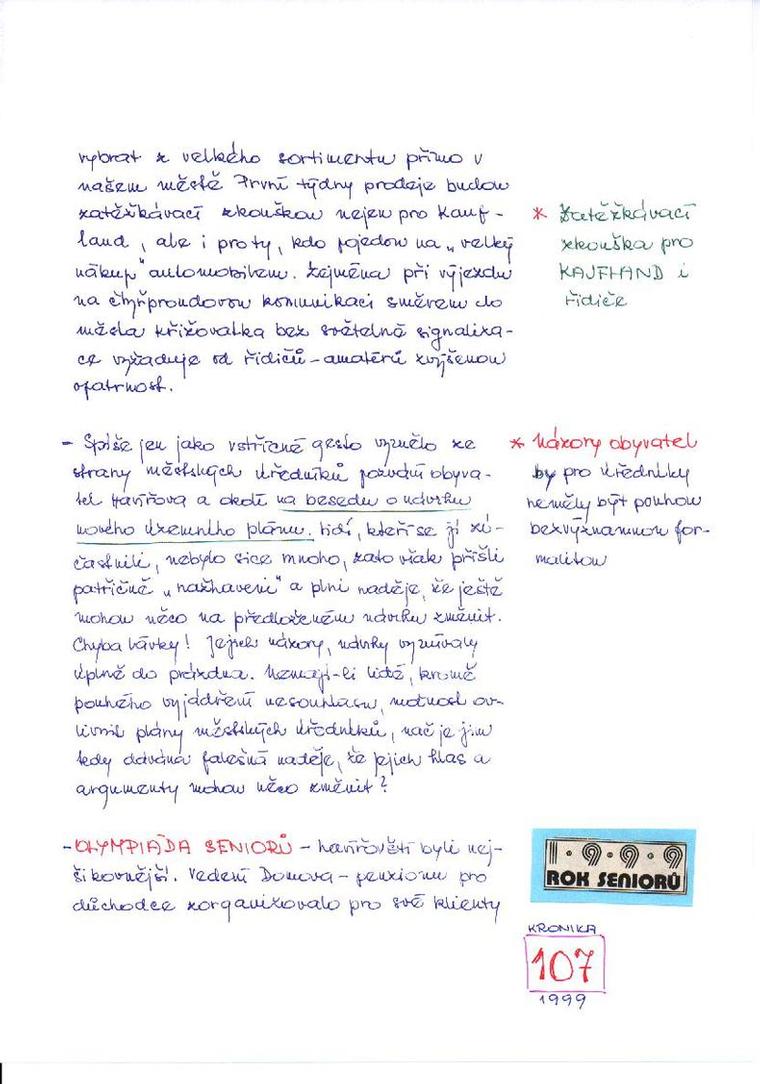 vybrat z velkého sortimentu přímo v
našem městě První týdny prodeje budou
zatěžkávací zkouškou nejen pro Kauf-
land, ale i pro ty, kdo pojedou na „velký
nákup" automobilem. Zejména při výjezdu
na čtyřproudovou komunikaci směrem do
města křižovatka bez světelné signaliza-
ce vyžaduje od řidičů-amatérů zvýšenou
opatrnost.
* Zatěžkávací
zkouška pro
KAUFLAND i
řidiče
- Spíše jen jako vstřícné gesto vyznělo ze
strany městských úředníků pozvání obyva-
tel Havířova a okolí na besedu o návrhu
nového územního plánu. Lidí, kteří se jí zú-
častnili, nebylo sice mnoho, zato však přišli
patřičně „nažhaveni" a plni naděje, že ještě
mohou něco na předloženém návrhu změnit.
Chyba lávky! Jejich názory, návrhy vyznívaly
úplně do prázdna. Nemají-li lidé, kromě
pouhého vyjádření nesouhlasu, možnost ov-
livnit plány městských úředníků, nač je jim
tedy dávána falešná naděje, že jejich hlas a
argumenty mohou něco změnit?
* Názory obyvatel
by pro úředníky
neměly být pouhou
bezvýznamnou for-
malitou
- OLYMPIÁDA SENIORŮ - havířovští byli nej-
šikovnější. Vedení Domova-penzionu pro
důchodce zorganizovalo pro své klienty
1·9·9·9
ROK SENIORŮ
KRONIKA
107
1999